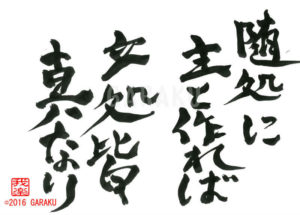 随処に
主と作れば
立処皆
真なり
GARAKU
我楽
©2016 GARAKU